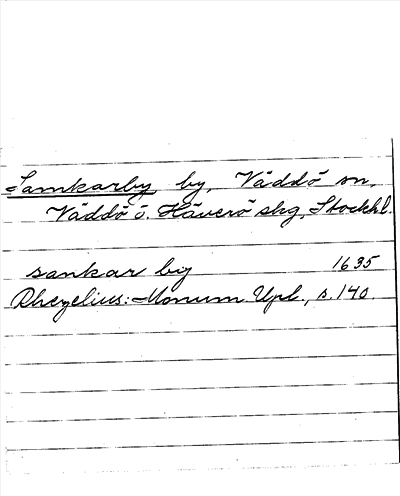 Samkarby by, Väddö sn,
Väddö o. Häverö skg, Stockhl.
sankar by 1635
Rhezelius: Monum. Upl., s. 140.